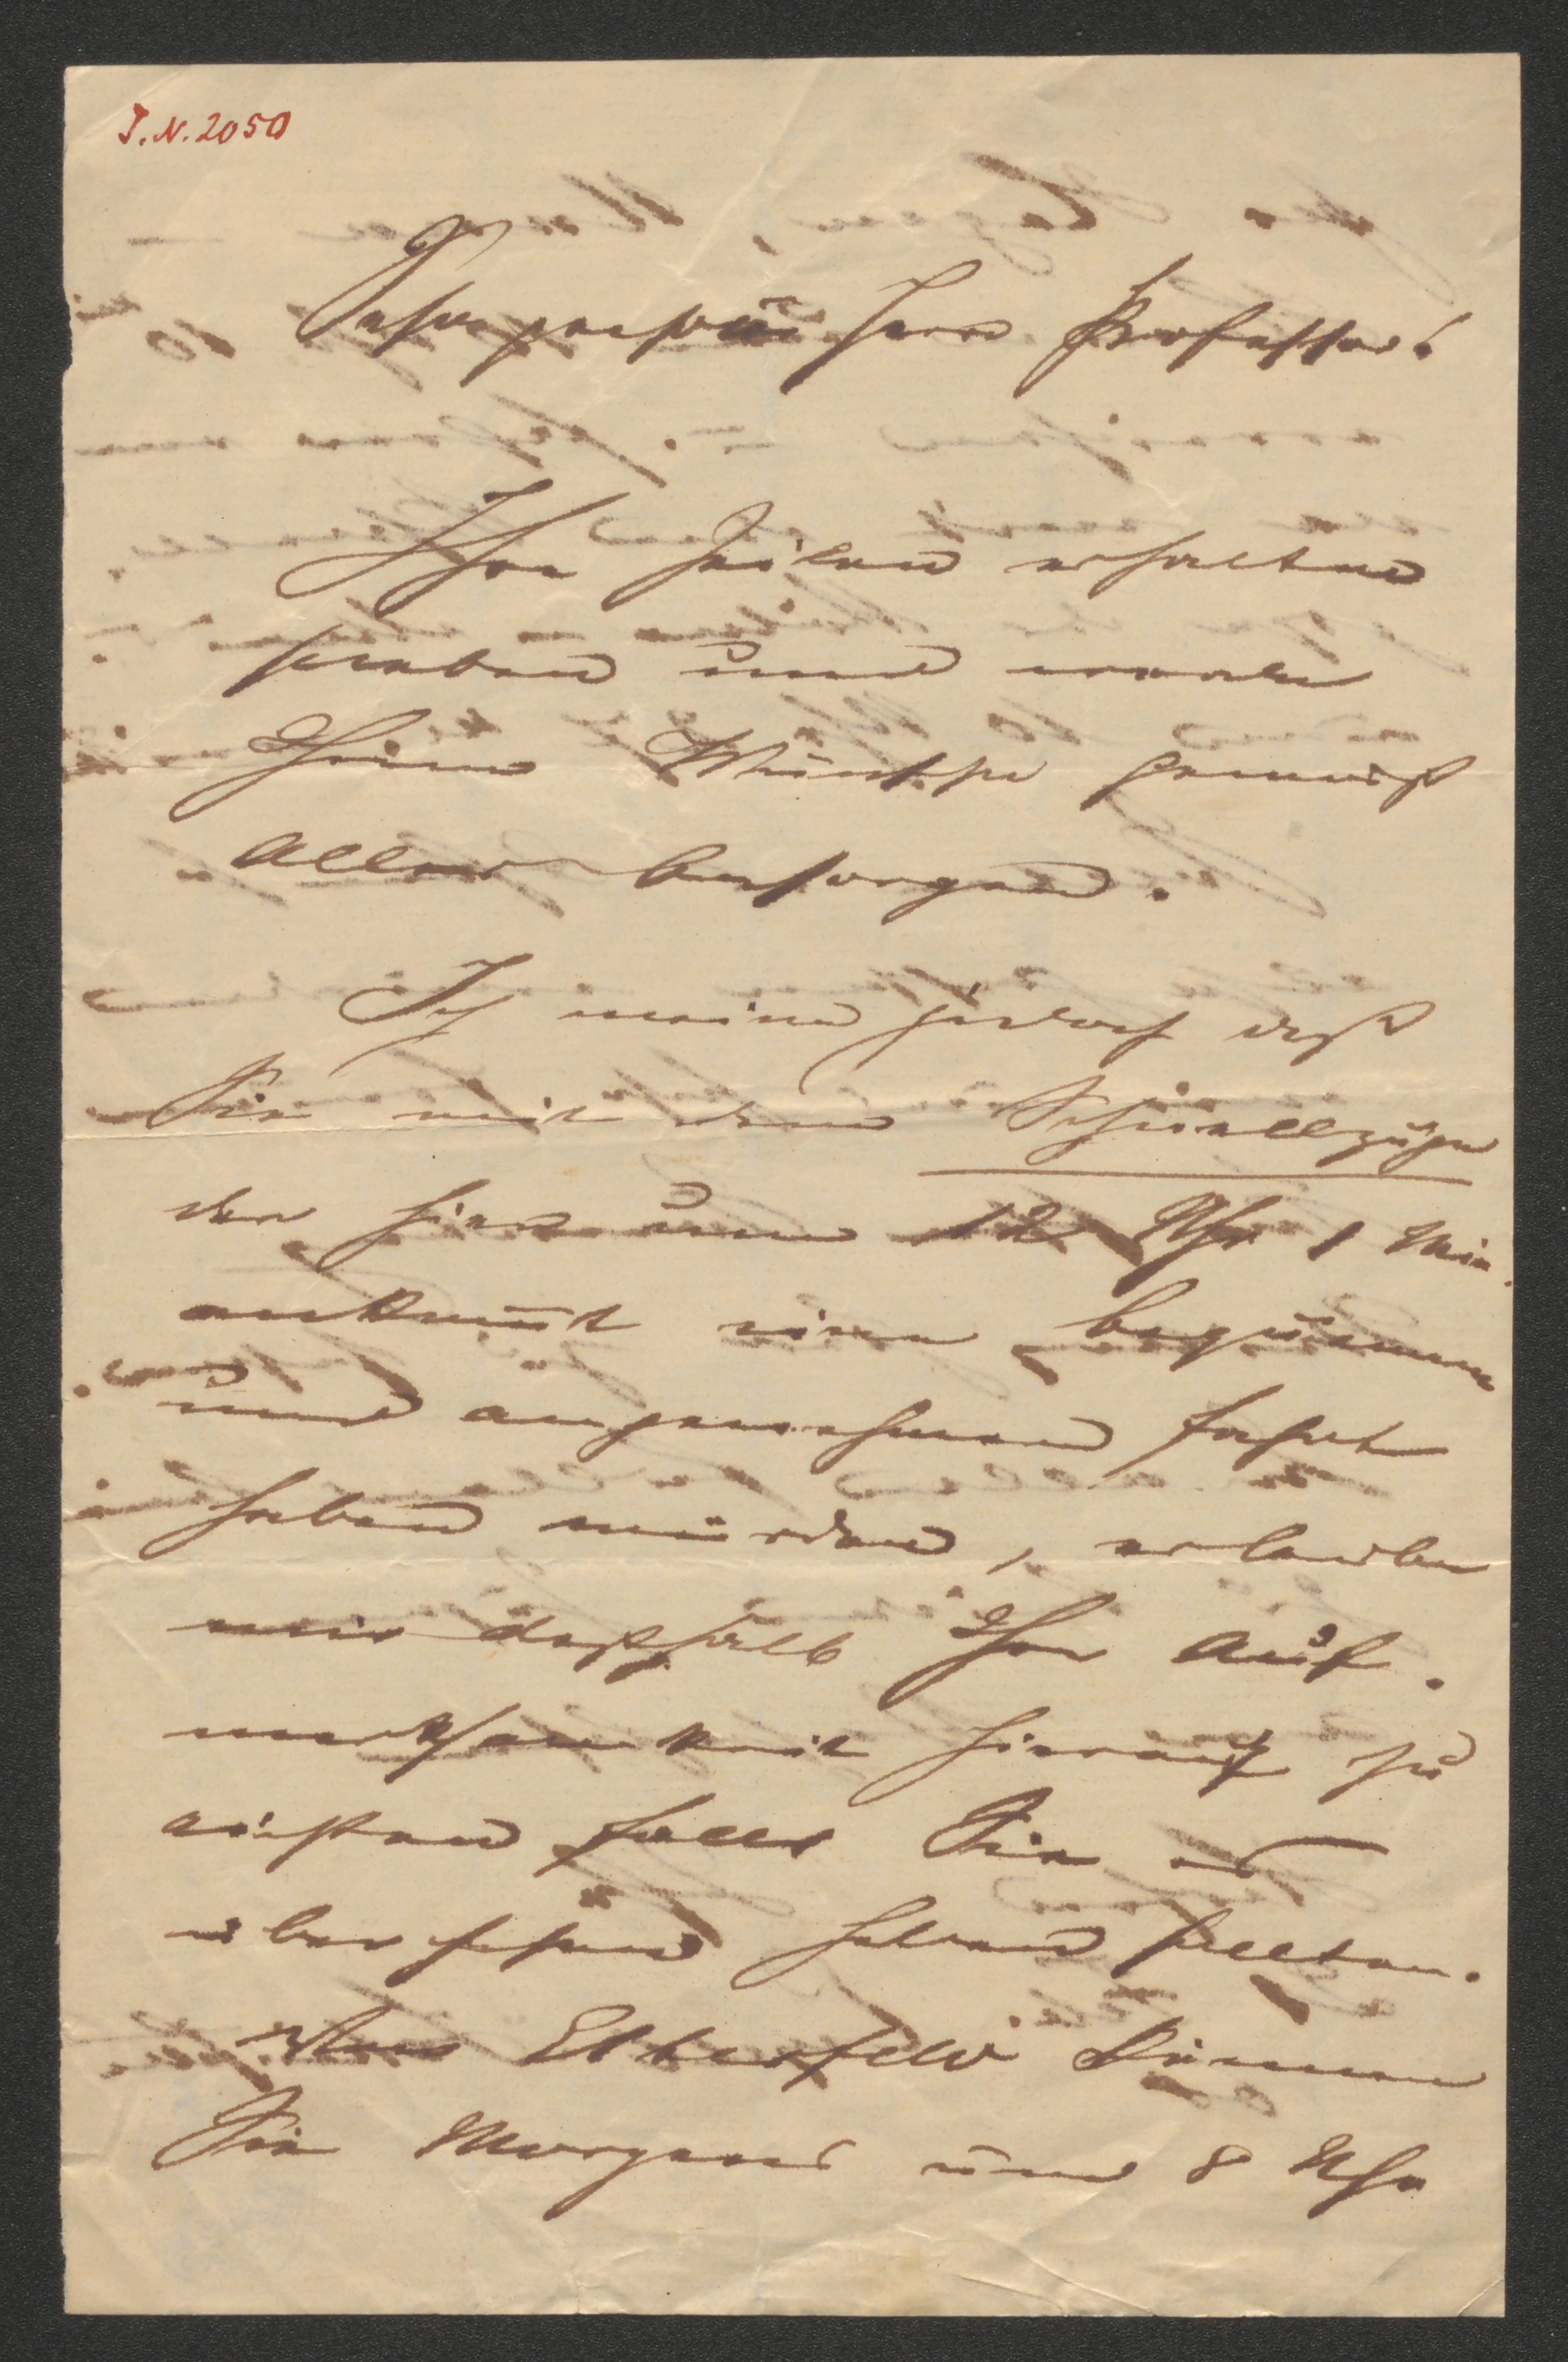 J. N. 2050
Sehr geehrter Herr Professor!
Ihre Zeilen erhalten
haben und werde
Ihrem Wunsche gemäß
alles besorgen.
Ich meine jedoch daß
Sie mit dem Schnellzuge
der hier um 12 Uhr 1 Min.
ankom̅t eine bequeme
und angenehme Fahrt
haben würden, erlaube
mir deßhalb Ihre Auf-
merksamkeit hierauf zu
richten falls Sie es
übersehen haben sollten.
Von Elberfeld können
Sie Morgens um 8 Uhr